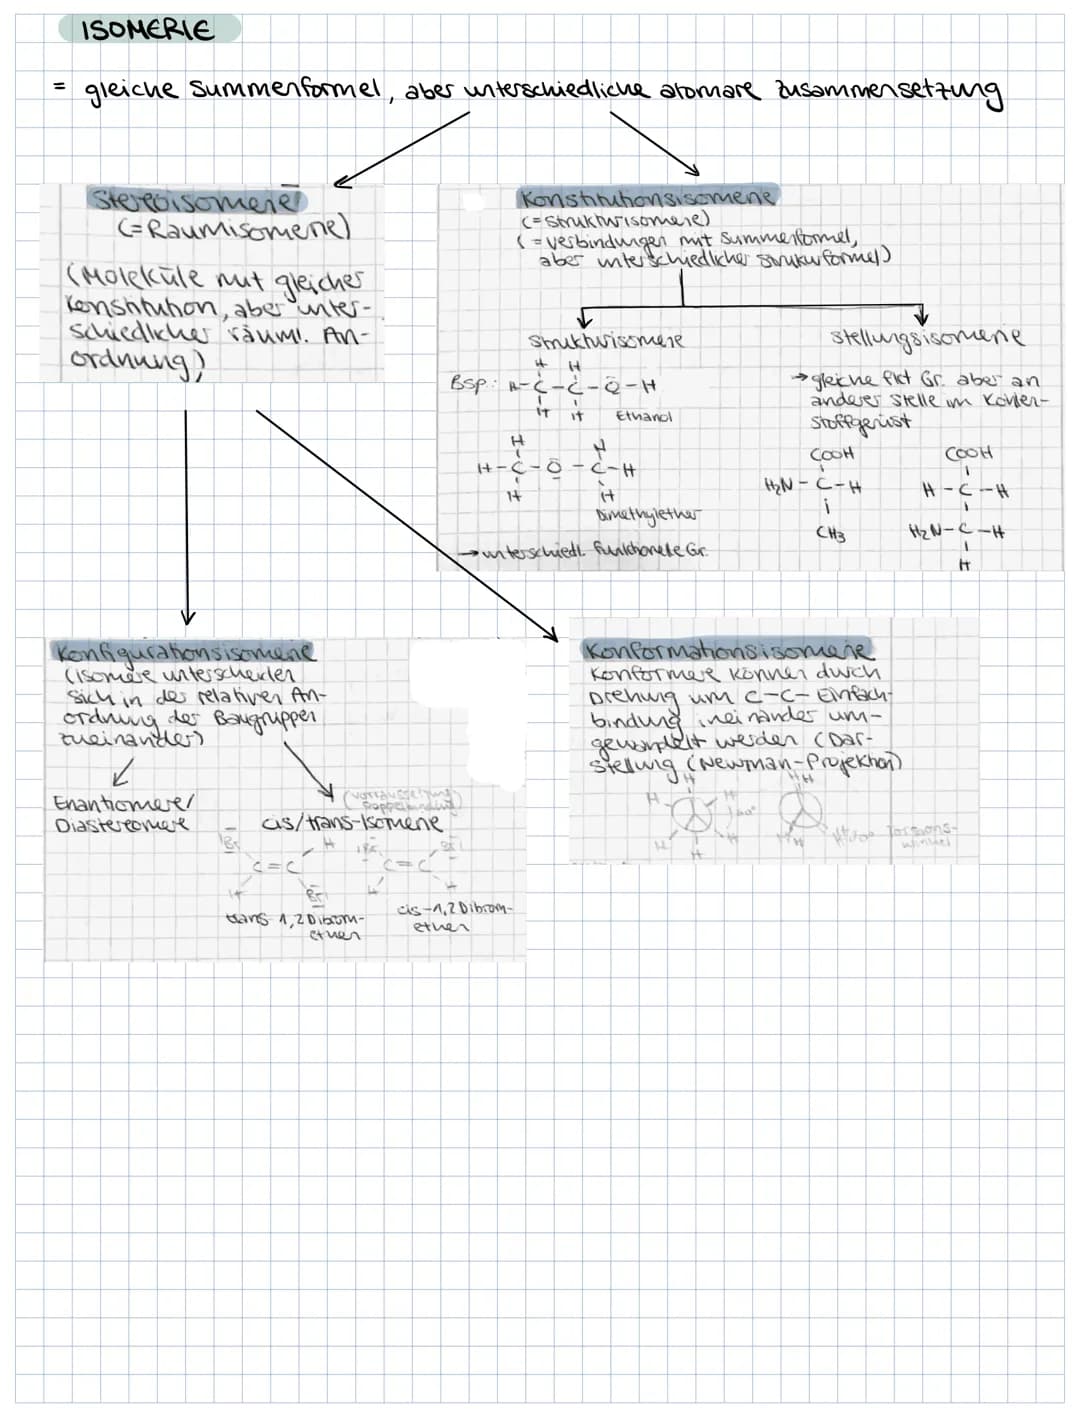 ISOMERIE
= gleiche Summenformel, aber unterschiedliche atomare Zusammensetzung
Stereoisomerie
(=Raumisomerie)
(Moleküle mit gleicher
Konstitution, aber unter-
schiedlicher räuml. An-
ordnung)
Konstitutionsisomerie
(=Strukturisomere)
(=Verbindungen mit Summenformel,
aber unterschiedlicher Strukturformel)
Strukturisomere
Bsp.: H-C-C-O-H
H H
H H
Ethanol
H H
H-C-O-C-H
H H
Dimethylether
→unterschiedl. funktionelle Gr.
Stellungsisomerie
→gleiche fkt Gr. aber an
anderer Stelle im Kohlen-
stoffgerüst
COOH
H2N-C-H
CH3
COOH
H-C-H
H2N-C-H
H
Konfigurationsisomerie
(Isomere unterscheiden
sich in der relativen An-
ordnung der Baugruppen
zueinander)
Enantiomere/
Diastereomere
(Vorraussetzung
Doppelbindung)
cis/trans-Isomerie
Br H
C=C
H Br
trans 1,2 Dibrom-
ethen
Br Br
C=C
H H
cis-1,2 Dibrom-
ethen
Konformationsisomerie
Konformere können durch
Drehung um C-C-Einfach-
bindung ineinander um-
gewandelt werden (Dar-
stellung (Newman-Projektion)
H
H H
H H
H
HH
HH
Torsions-
winkel